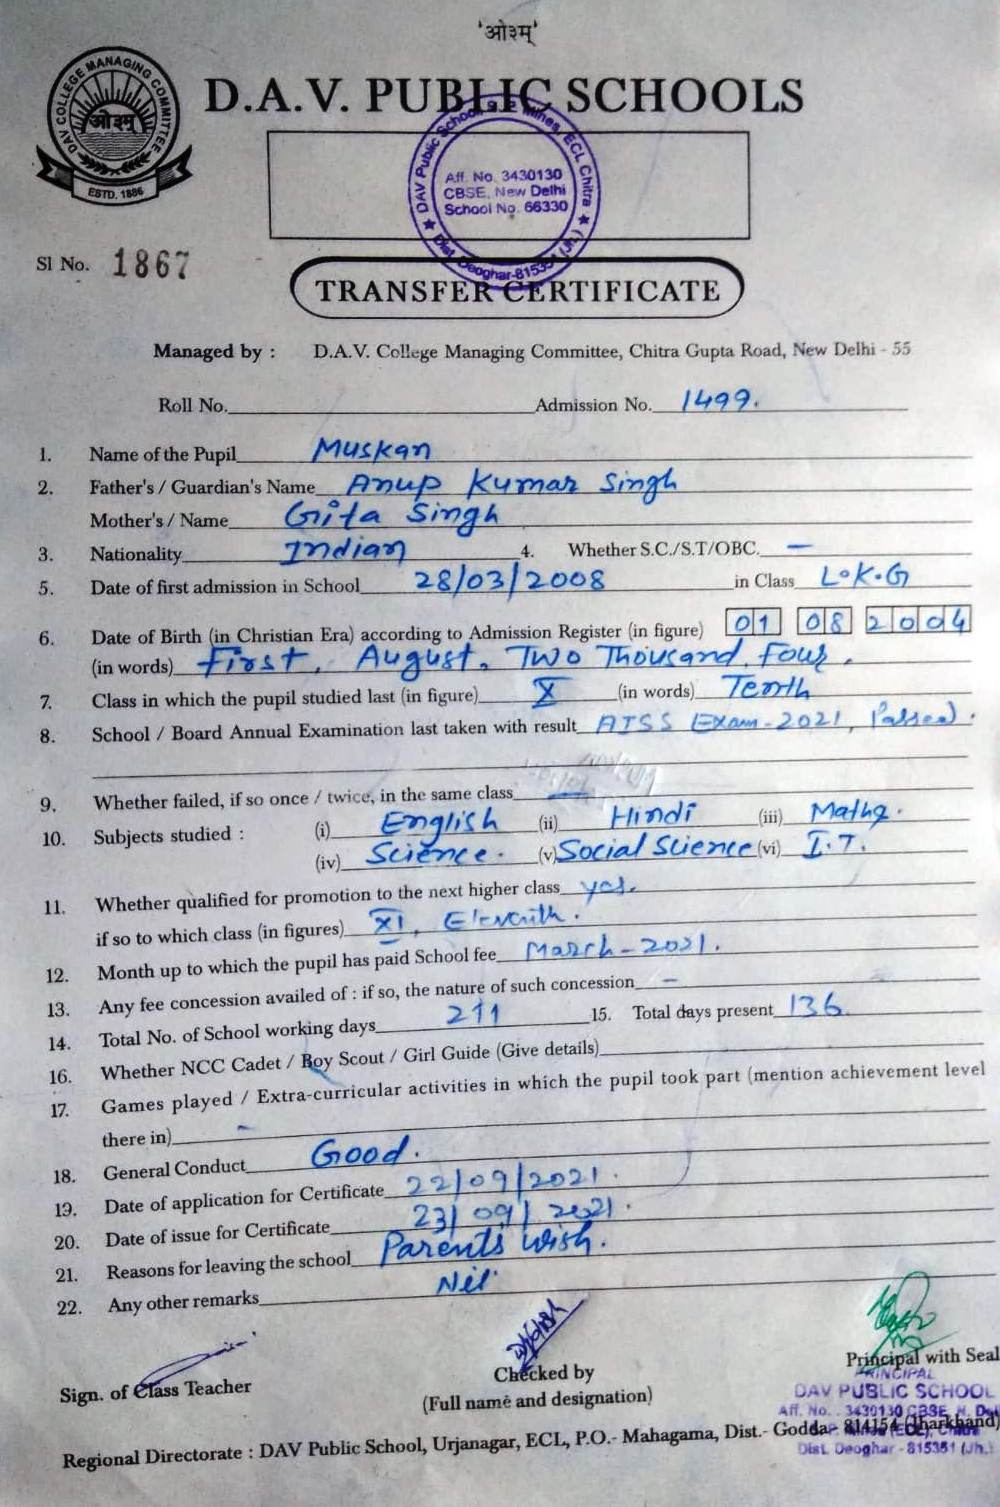 'ओ३म्'
DAV COLLEGE MANAGING COMMITTEE
ओ३म्
ESTD. 1886
D.A.V. PUBLIC SCHOOLS
DAV Public School, S P Mines, ECL Chitra
Aff. No. 3430130
CBSE, New Delhi
School No. 66330
Dist. Deoghar-815351 (Jh.)
Sl No. 1867
TRANSFER CERTIFICATE
Managed by : D.A.V. College Managing Committee, Chitra Gupta Road, New Delhi - 55
Roll No. Admission No. 1499.
1. Name of the Pupil Muskan
2. Father's / Guardian's Name Anup Kumar Singh
Mother's / Name Gita Singh
3. Nationality Indian 4. Whether S.C./S.T/OBC. —
5. Date of first admission in School 28/03/2008 in Class L.K.G
6. Date of Birth (in Christian Era) according to Admission Register (in figure) 01 08 2004
(in words) First, August, Two Thousand Four.
7. Class in which the pupil studied last (in figure) X (in words) Tenth
8. School / Board Annual Examination last taken with result AISS Exam-2021, Passed.
9. Whether failed, if so once / twice, in the same class —
10. Subjects studied : (i) English (ii) Hindi (iii) Maths.
(iv) Science. (v) Social Science (vi) I.T.
11. Whether qualified for promotion to the next higher class yes.
if so to which class (in figures) XI, Eleventh.
12. Month up to which the pupil has paid School fee March-2021.
13. Any fee concession availed of : if so, the nature of such concession —
14. Total No. of School working days 211 15. Total days present 136
16. Whether NCC Cadet / Boy Scout / Girl Guide (Give details)
17. Games played / Extra-curricular activities in which the pupil took part (mention achievement level
there in) -
18. General Conduct Good.
19. Date of application for Certificate 22/09/2021.
20. Date of issue for Certificate 23/09/2021.
21. Reasons for leaving the school Parents wish.
22. Any other remarks Nil
Sign. of Class Teacher
Checked by
(Full name and designation)
Principal with Seal
PRINCIPAL
DAV PUBLIC SCHOOL
Aff. No. 3430130 CBSE
Regional Directorate : DAV Public School, Urjanagar, ECL, P.O.- Mahagama, Dist.- Godda- 814154 (Jharkhand)
Dist. Deoghar - 815351 (Jh.)